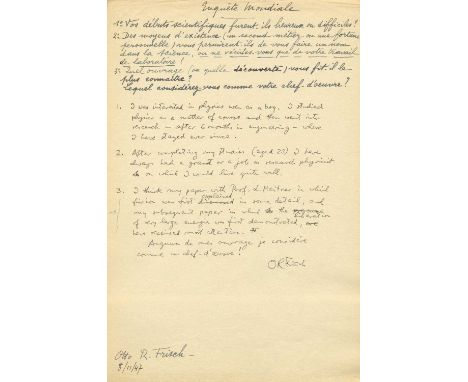 Enquête Mondiale
1º Vos débuts scientifiques furent-ils heureux ou difficiles?
2º Des moyens d'existence (un second métier ou une fortune
personnelle) vous permirent-ils de vous faire un nom
dans la science, ou ne vécûtes-vous que de votre travail
de laboratoire?
3º Quel ouvrage (ou quelle découverte) vous fit-il le
plus connaître?
Lequel considérez vous comme votre chef-d'œuvre?
1. I was interested in physics even as a boy. I studied
physics as a matter of course and then went into
research – after 6 months in engineering – where
I have stayed ever since.
2. After completing my studies (aged 22) I have
always had a grant or a job as research physicist
on which I could live quite well.
3. I think my paper with Prof. L. Meitner in which
fission was first explained in some detail, and
my subsequent paper in which the liberation
of very large energies was first demonstrated,
have received most attention.
Aucun de mes ouvrages je considère
comme un chef-d'œuvre!
O R Frisch
Otto R. Frisch
8/11/47